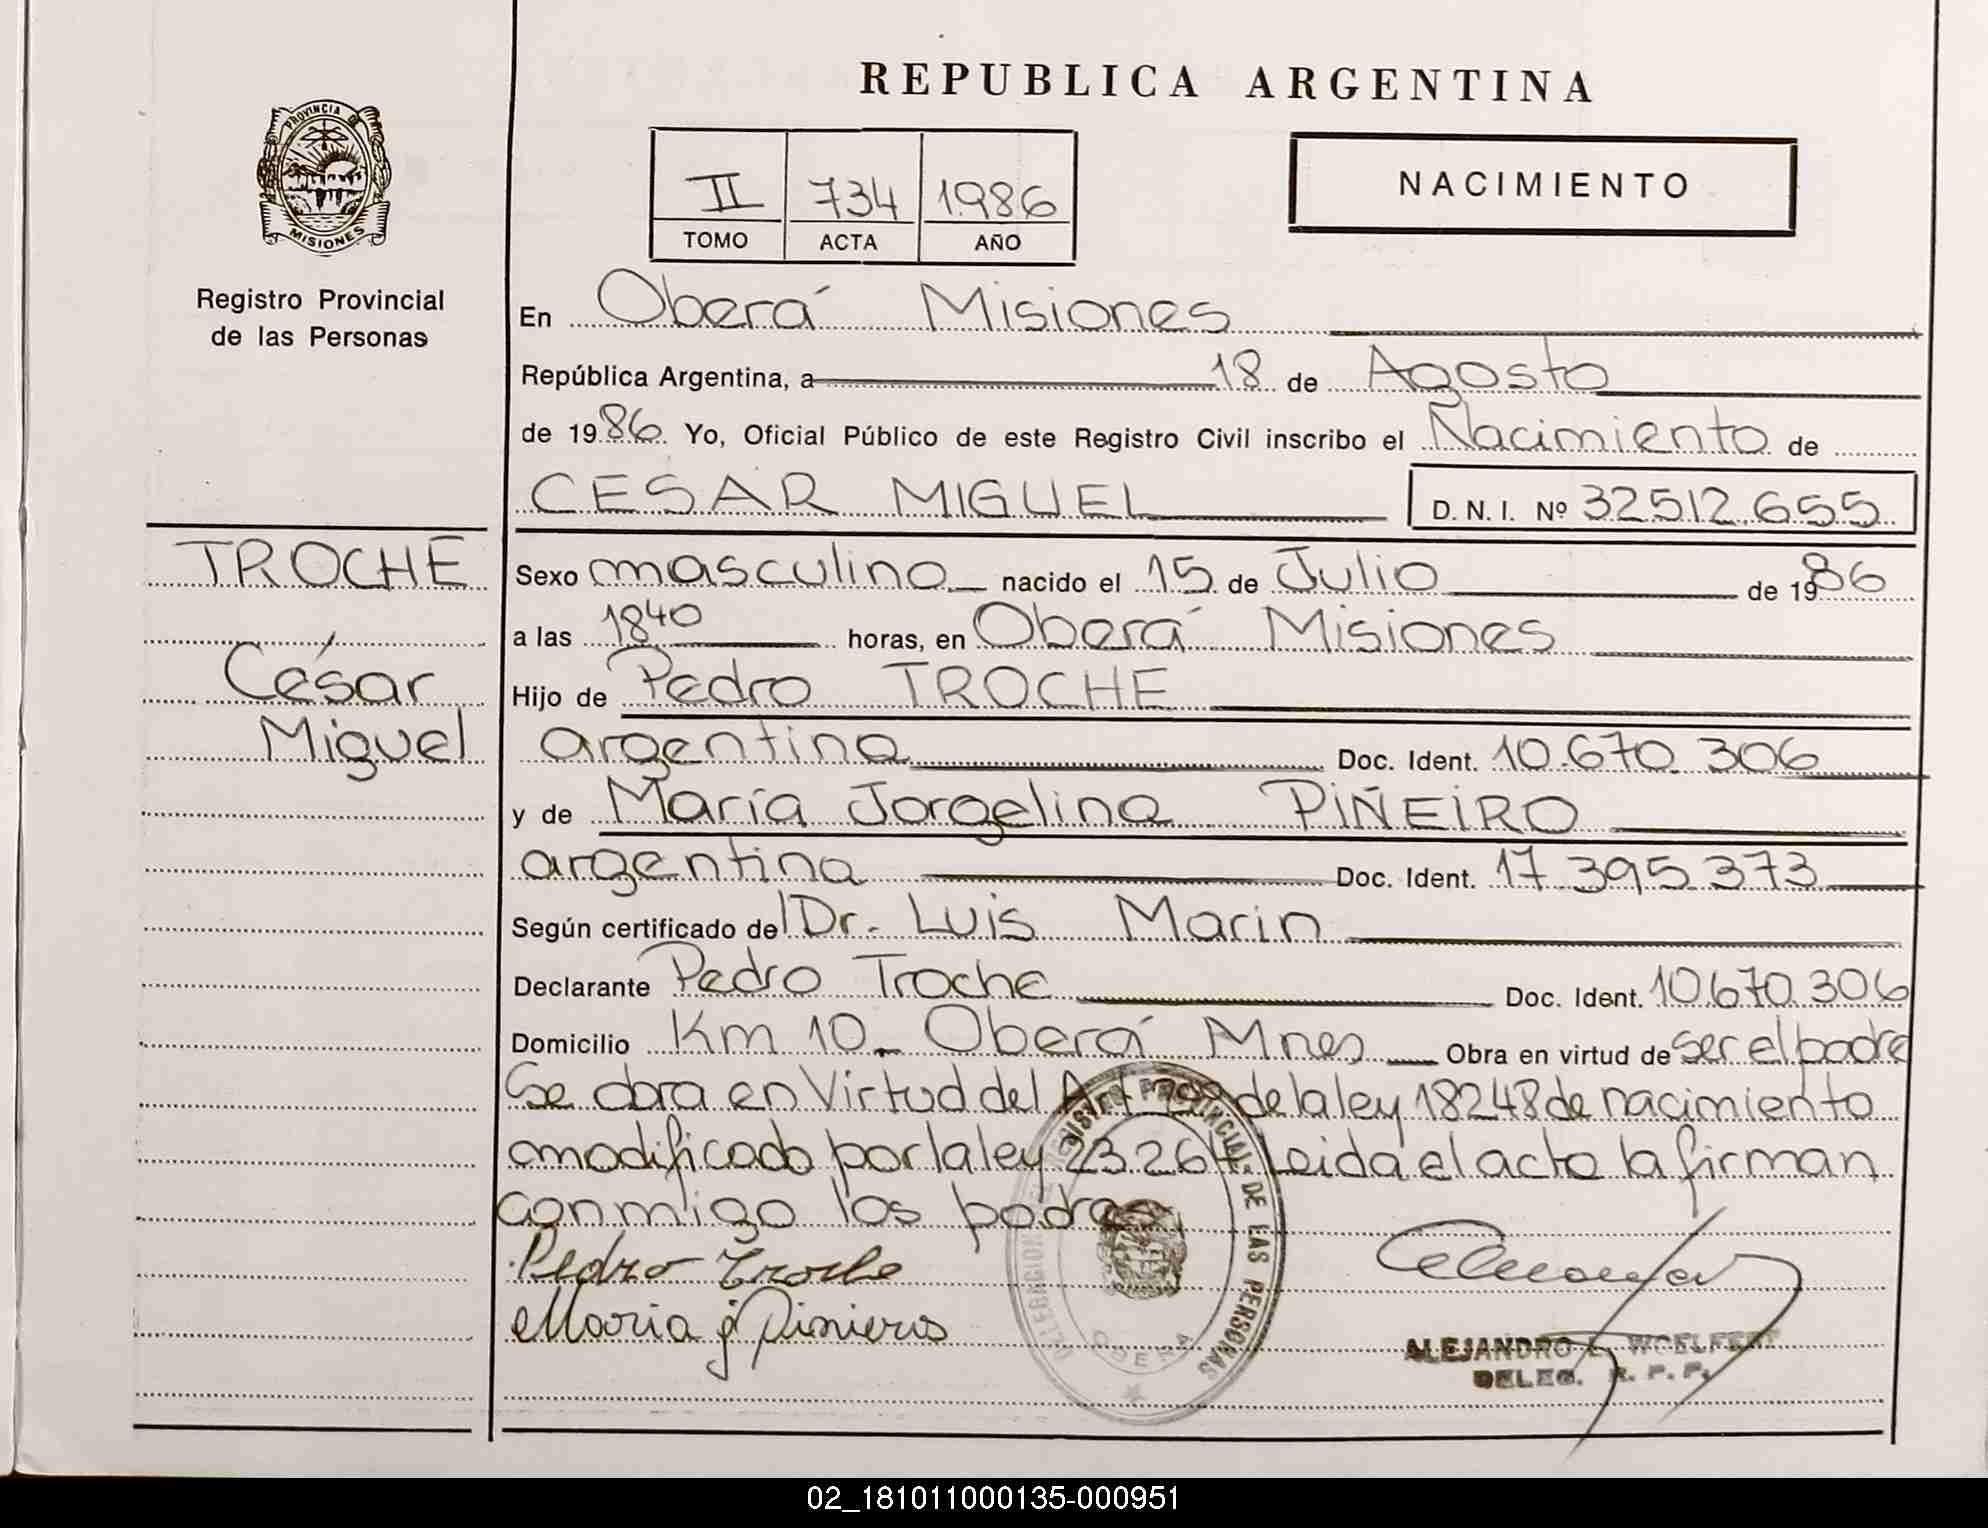 REPUBLICA ARGENTINA
PROVINCIA DE
MISIONES
Registro Provincial
de las Personas
II 734 1986
TOMO ACTA AÑO
NACIMIENTO
En Oberá Misiones
República Argentina, a 18 de Agosto
de 1986 Yo, Oficial Público de este Registro Civil inscribo el Nacimiento de
CESAR MIGUEL D.N.I. Nº 32512.655
TROCHE
César
Miguel
Sexo masculino nacido el 15 de Julio de 1986
a las 1840 horas, en Oberá Misiones
Hijo de Pedro TROCHE
argentina Doc. Ident. 10.670.306
y de María Jorgelina PIÑEIRO
argentina Doc. Ident. 17.395.373
Según certificado de Dr. Luis Marin
Declarante Pedro Troche Doc. Ident. 10.670.306
Domicilio Km 10 - Oberá Mnes Obra en virtud de ser el padre
Se obra en Virtud del Art de la ley 18248 de nacimiento
modificado por la ley 23.264 Leida el acta la firman
conmigo los padres
Pedro Troche
Maria J Pinieiro
DELEGACION REGISTRO PROVINCIAL DE LAS PERSONAS
OBERA
ALEJANDRO L. WOELFERT
DELEG. R. P. P.
02_181011000135-000951